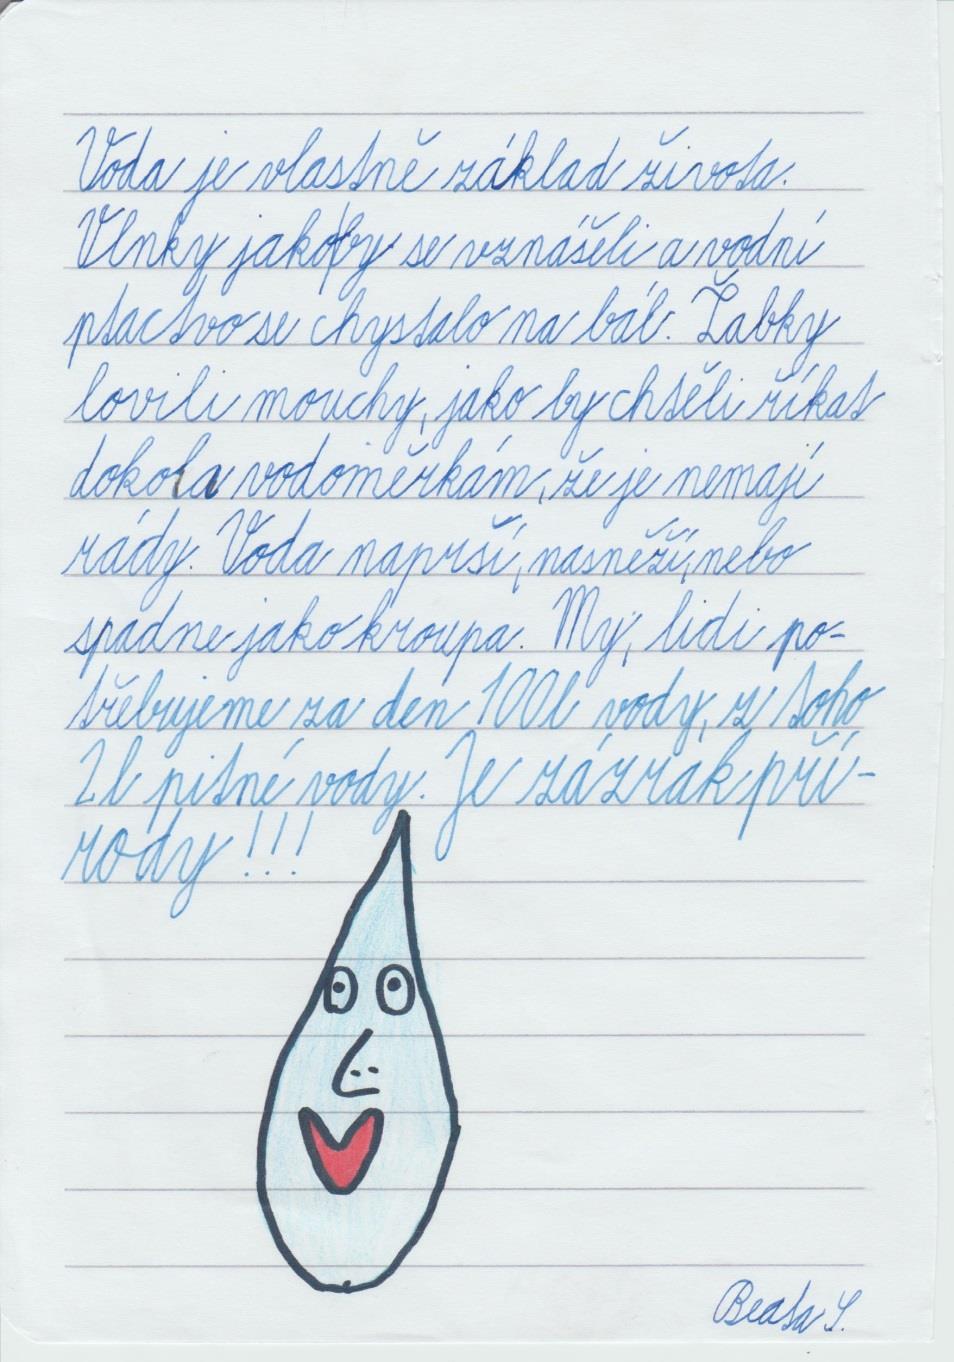 Voda je vlastně základ života.
Vlnky jakoby se vznášeli a vodní
ptactvo se chystalo na bál. Žabky
lovili mouchy, jako by chtěli říkat
dokola vodoměrkám, že je nemají
rády. Voda naprší, nasněží, nebo
spadne jako kroupa. My, lidi po-
třebujeme za den 100l vody, z toho
2l pitné vody. Je zázrak pří-
rody!!!
Beata S.